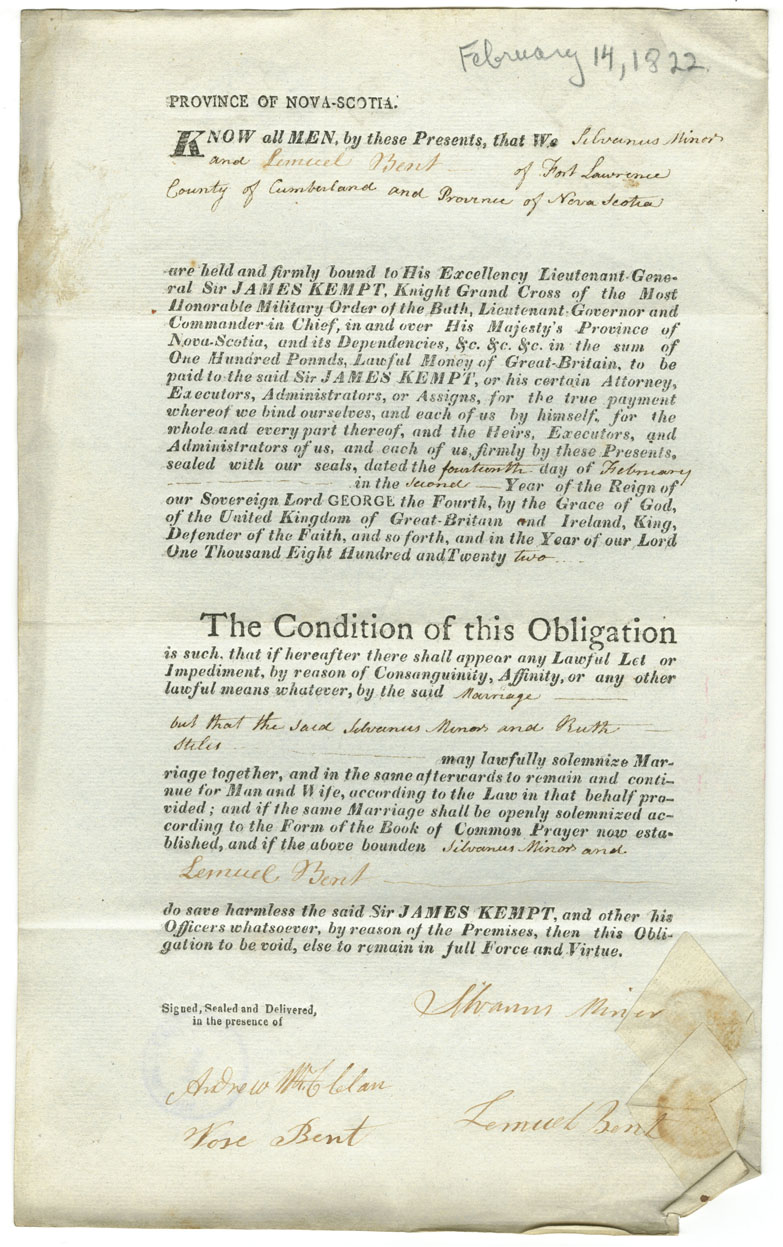 February 14, 1822.
PROVINCE OF NOVA-SCOTIA.
KNOW all MEN, by these Presents, that We Silvanus Minor
and Lemuel Bent of Fort Lawrence
County of Cumberland and Province of Nova Scotia
are held and firmly bound to His Excellency Lieutenant-Gene-
ral Sir JAMES KEMPT, Knight Grand Cross of the Most
Honorable Military Order of the Bath, Lieutenant-Governor and
Commander in Chief, in and over His Majesty's Province of
Nova-Scotia, and its Dependencies, &c. &c. &c. in the sum of
One Hundred Ponnds, Lawful Money of Great-Britain, to be
paid to the said Sir JAMES KEMPT, or his certain Attorney,
Executors, Administrators, or Assigns, for the true payment
whereof we bind ourselves, and each of us by himself, for the
whole and every part thereof, and the Heirs, Executors, and
Administrators of us, and each of us, firmly by these Presents,
sealed with our seals, dated the fourteenth day of February
in the second Year of the Reign of
our Sovereign Lord GEORGE the Fourth, by the Grace of God,
of the United Kingdom of Great-Britain and Ireland, King,
Defender of the Faith, and so forth, and in the Year of our Lord
One Thousand Eight Hundred and Twenty two
The Condition of this Obligation
is such, that if hereafter there shall appear any Lawful Let or
Impediment, by reason of Consanguinity, Affinity, or any other
lawful means whatever, by the said Marriage
but that the said Silvanus Minor and Ruth
Stiles
may lawfully solemnize Mar-
riage together, and in the same afterwards to remain and conti-
nue for Man and Wife, according to the Law in that behalf pro-
vided; and if the same Marriage shall be openly solemnized ac-
cording to the Form of the Book of Common Prayer now esta-
blished, and if the above bounden Silvanus Minor and
Lemuel Bent
do save harmless the said Sir JAMES KEMPT, and other his
Officers whatsoever, by reason of the Premises, then this Obli-
gation to be void, else to remain in full Force and Virtue.
Signed, Sealed and Delivered,
in the presence of
Silvanus Minor
Andrew McClelan
Lemuel Bent
Vose Bent